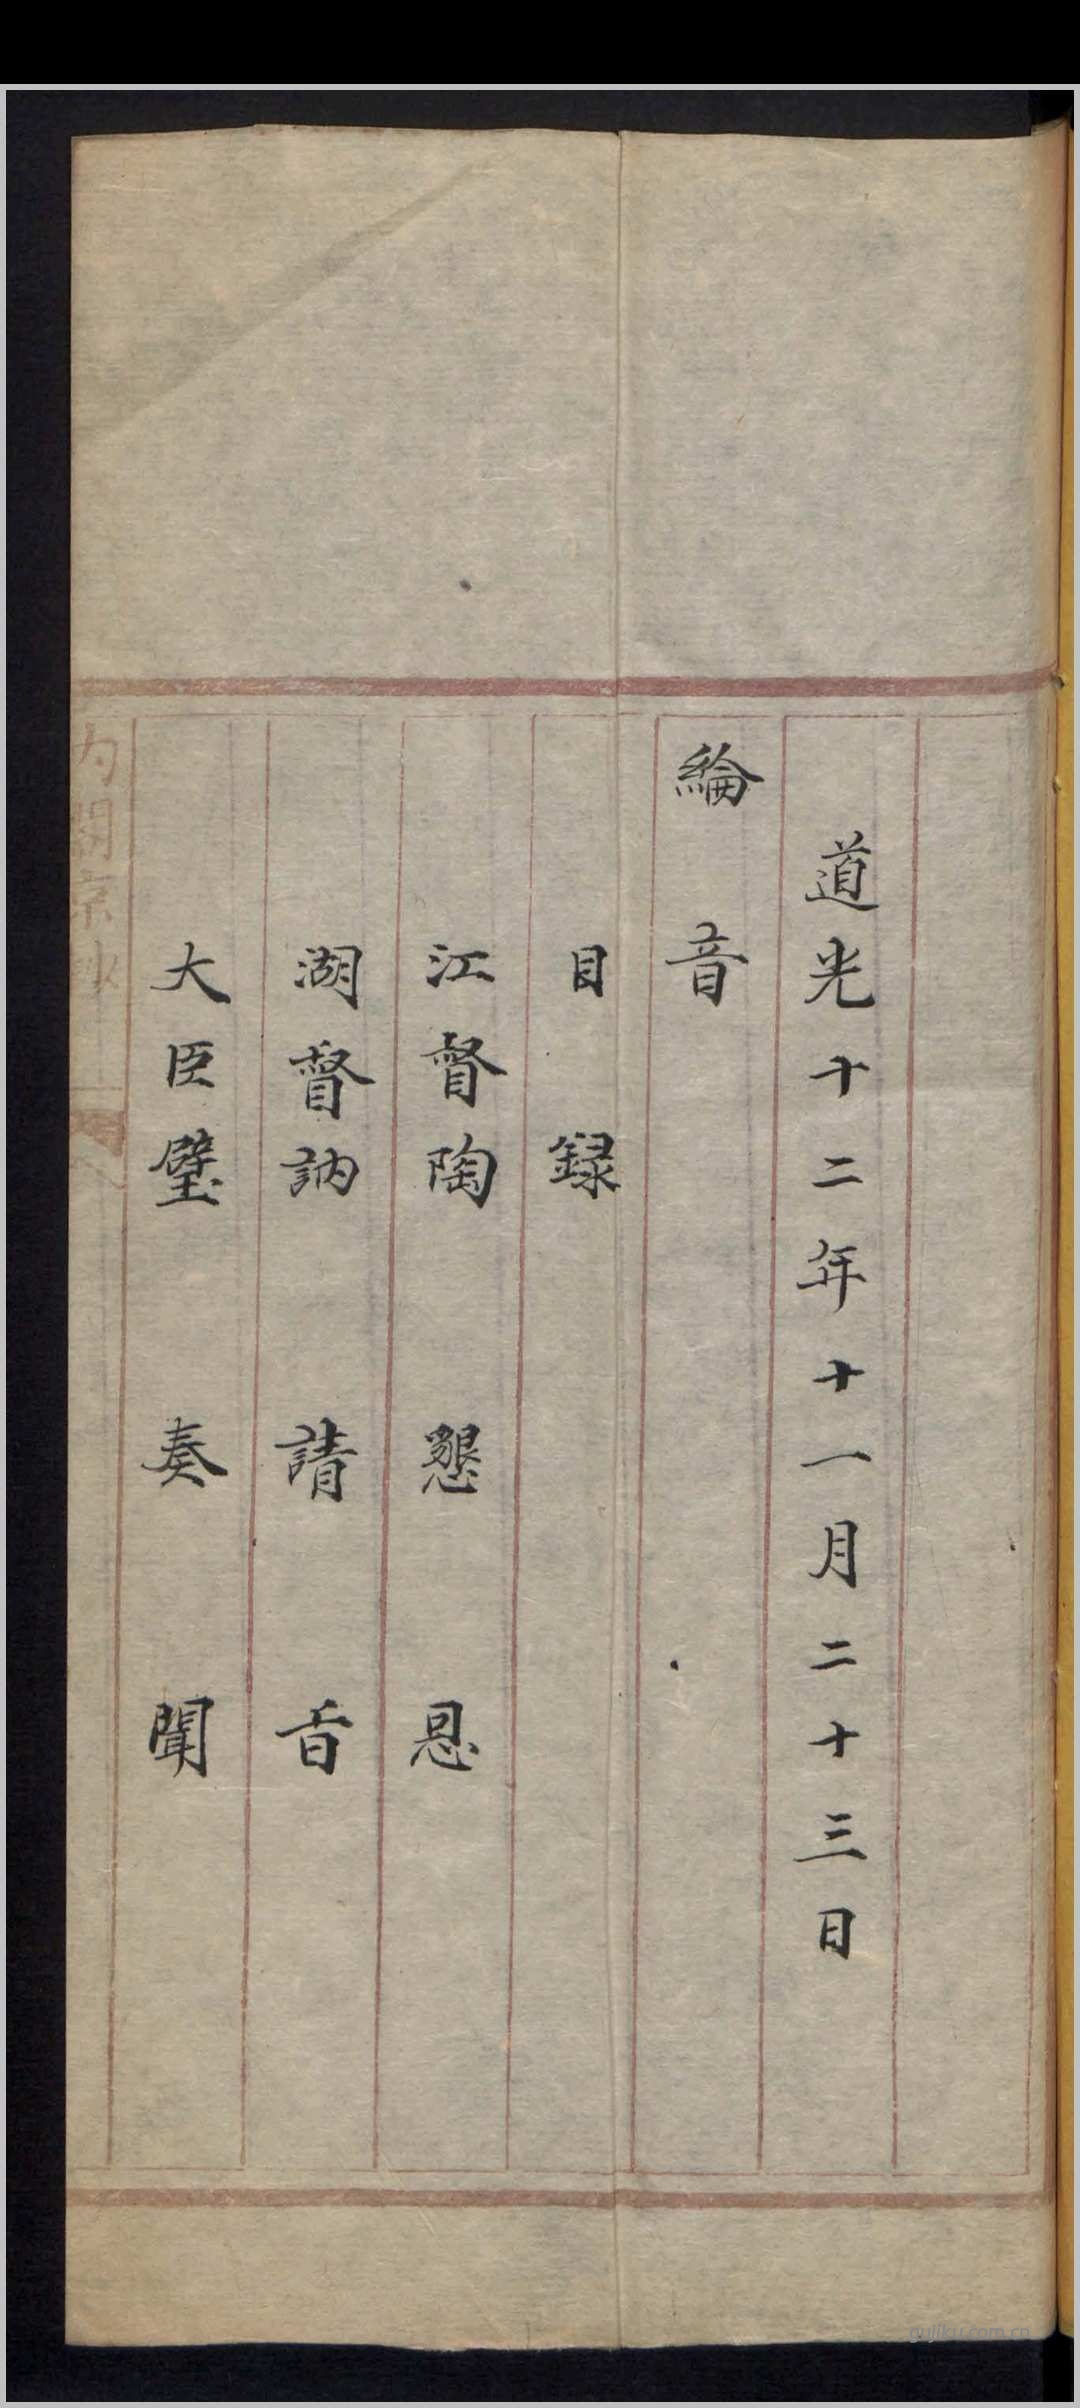 道光十二年十一月二十三日
綸音
目録
江督陶 懇 恩
湖督訥 請 旨
大臣璧 奏 聞
内閣京抄
gujiku.com.cn